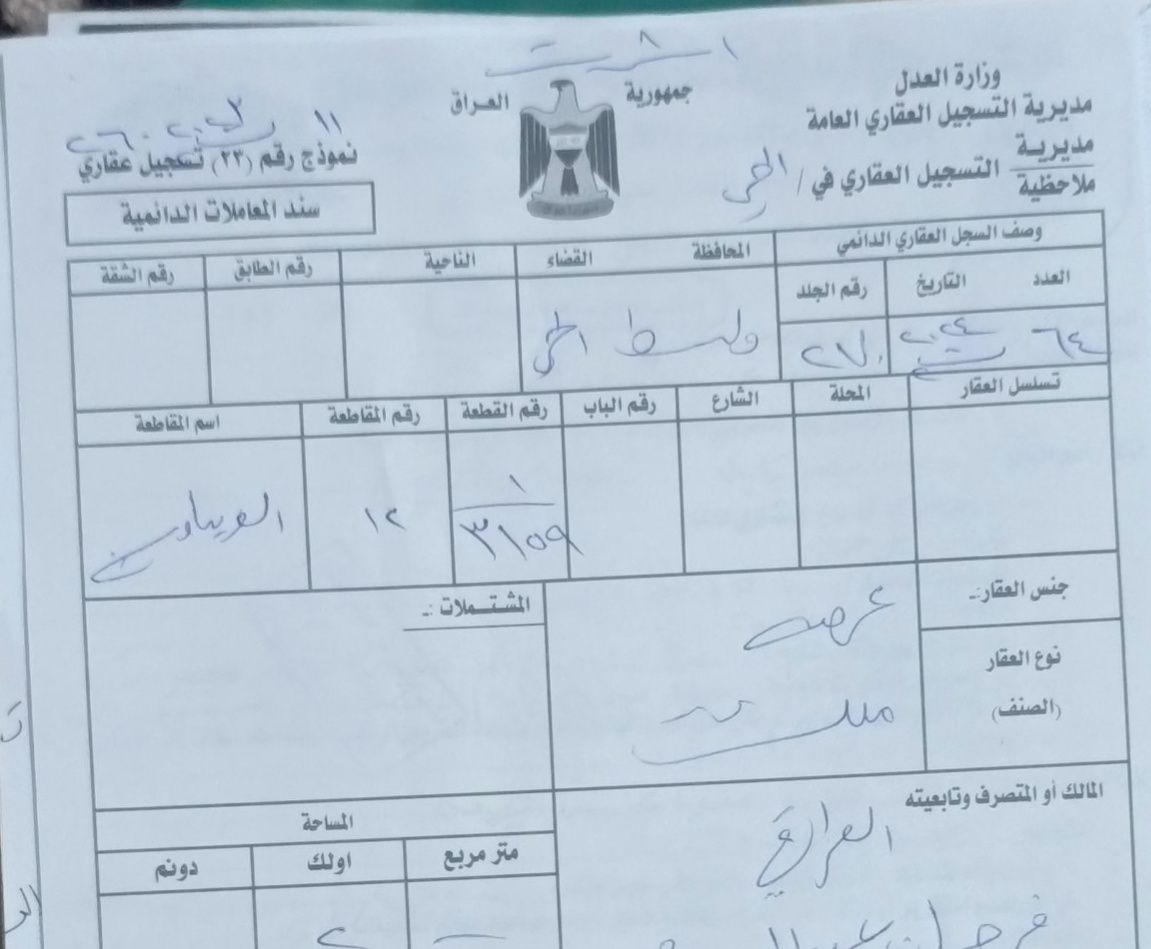 وزارة العدل
مديرية التسجيل العقاري العامة
مديرية
ملاحظية
التسجيل العقاري في / الحي
جمهورية العراق
نموذج رقم (٢٣) تسجيل عقاري
سند المعاملات الدائمية
وصف السجل العقاري الدائمي
العدد التاريخ رقم الجلد المحافظة القضاء الناحية رقم الطابق رقم الشقة
٦٤ ٢٠٢٤ ٢٧٠ واسط الحي
تسلسل العقار المحلة الشارع رقم الباب رقم القطعة رقم المقاطعة اسم المقاطعة
١
٣١٥٩ ١٢
جنس العقار:ـ عرصه
نوع العقار
(الصنف)
ملك
المشتــملات :ـ
المالك أو المتصرف وتابعيته
المساحة
متر مربع اولك دونم